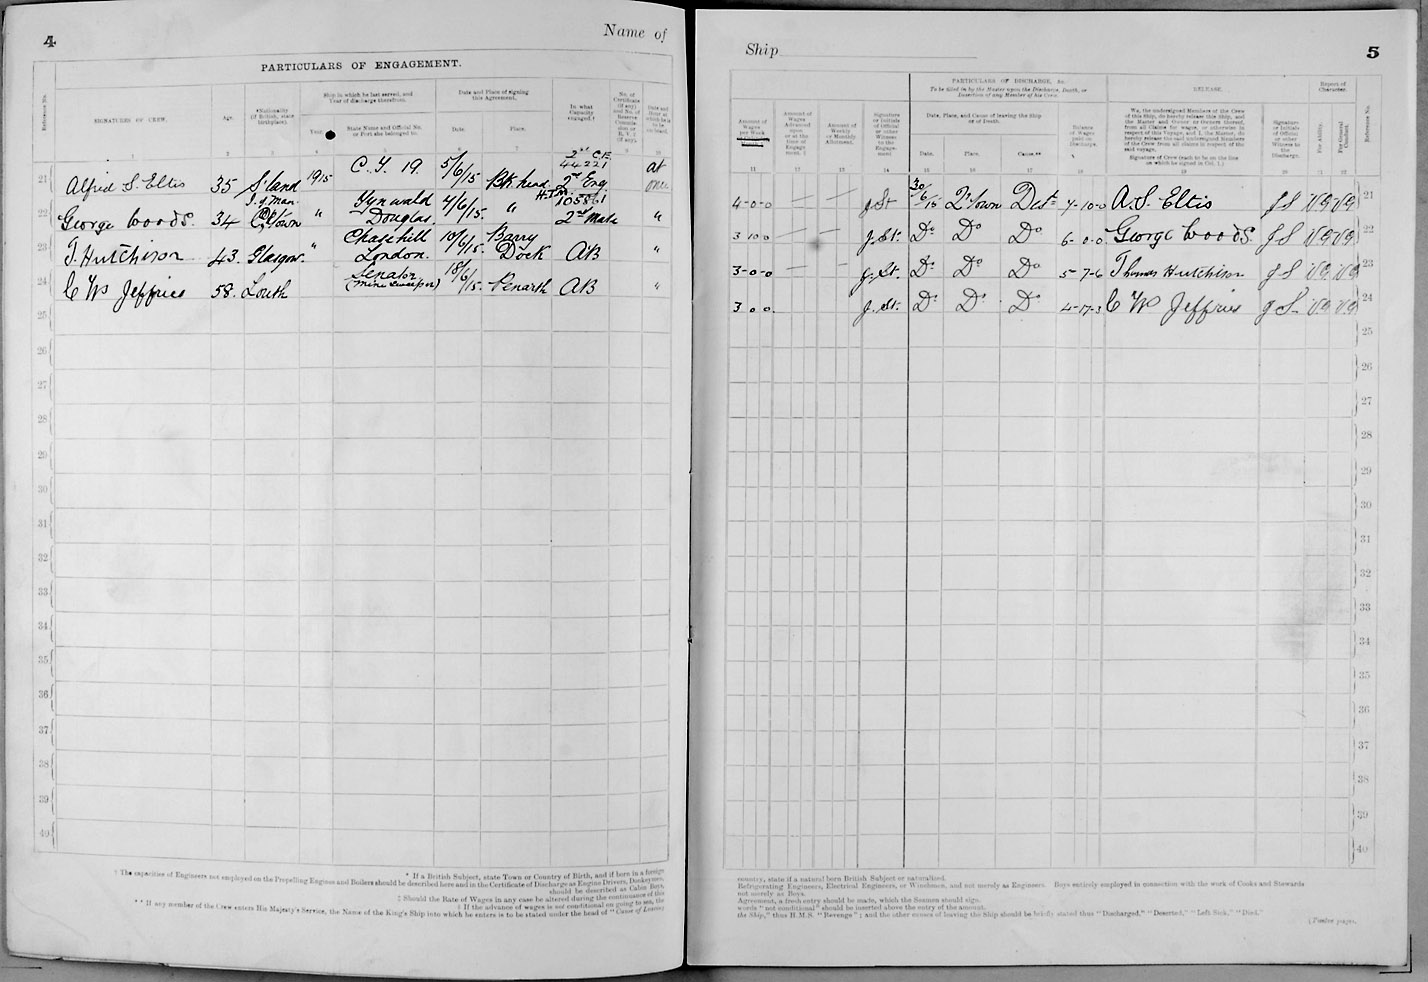 4
Name of
PARTICULARS OF ENGAGEMENT.
Reference No.
SIGNATURES OF CREW.
Age.
*Nationality
(If British, state
birthplace).
Ship in which he last served, and
Year of discharge therefrom.
Year.
State Name and Official No.
or Port she belonged to.
Date and Place of signing
this Agreement.
Date.
Place.
In what
Capacity
engaged.†
No. of
Certificate
(if any)
and No. of
Reserve
Commis-
sion or
R. V. 2
(if any).
Date and
Hour at
which he is
to be
on board.
1 2 3 4 5 6 7 8 9 10
21 Alfred S. Eltis 35 S'land 1915 C.Y. 19. 5/6/15 Bk head 2nd C.E. 44221 2nd Eng at once
22 George Woods. 34 I. of Man. C. Town " Tynwald Douglas 4/6/15. " H.T.M. 105861 2nd Mate "
23 T. Hutchison 43. Glasgow. " Chasehill London. 10/6/15. Barry Dock AB "
24 C W Jeffries 58. Louth Senator (mine sweeper) 18/6/15. Penarth AB "
25
26
27
28
29
30
31
32
33
34
35
36
37
38
39
40
* If a British Subject, state Town or Country of Birth, and if born in a foreign
† The capacities of Engineers not employed on the Propelling Engines and Boilers should be described here and in the Certificate of Discharge as Engine Drivers, Donkeymen,
should be described as Cabin Boys,
‡ Should the Rate of Wages in any case be altered during the continuance of this
§ If the advance of wages is not conditional on going to sea, the
** If any member of the Crew enters His Majesty's Service, the Name of the King's Ship into which he enters is to be stated under the head of "Cause of Leaving
Ship
5
PARTICULARS OF DISCHARGE, &c.
To be filled in by the Master upon the Discharge, Death, or
Desertion of any Member of his Crew.
RELEASE.
Report of
Character.
Amount of
Wages
per Week
Amount of
Wages
Advanced
upon
or at the
time of
Engage
ment. ‡
Amount of
Weekly
or Monthly
Allotment.
Signature
or Initials
of Official
or other
Witness
to the
Engage-
ment.
Date, Place, and Cause of leaving the Ship
or of Death.
Date.
Place.
Cause.**
Balance
of Wages
paid on
Discharge.
We, the undersigned Members of the Crew
of this Ship, do hereby release this Ship, and
the Master and Owner or Owners thereof,
from all Claims for wages, or otherwise in
respect of this Voyage, and I, the Master, do
hereby release the said undersigned Members
of the Crew from all claims in respect of the
said voyage.
Signature of Crew (each to be on the line
on which he signed in Col. 1.)
Signature
or Initials
of Official
or other
Witness to
the
Discharge.
For Ability.
For General
Conduct.
Reference No.
11 12 13 14 15 16 17 18 19 20 21 22
4-0-0 — — J St 30/6/15 Q'Town Decd 7-10-0 A.S. Eltis J S VG VG 21
3 10 0 — — J. St. Do Do Do 6-0-0 George Woods. J S VG VG 22
3-0-0 — — J. St. Do Do Do 5-7-6 Thomas Hutchison J S VG VG 23
3 0 0. J. St. Do Do Do 4-17-3 C W Jeffries J S VG VG 24
25
26
27
28
29
30
31
32
33
34
35
36
37
38
39
40
country, state if a natural born British Subject or naturalised.
Refrigerating Engineers, Electrical Engineers, or Winchmen, and not merely as Engineers. Boys entirely employed in connection with the work of Cooks and Stewards
not merely as Boys.
Agreement, a fresh entry should be made, which the Seamen should sign.
words "not conditional" should be inserted above the entry of the amount.
the Ship," thus H.M.S. "Revenge"; and the other causes of leaving the Ship should be briefly stated thus "Discharged," "Deserted," "Left Sick," "Died."
(Twelve pages.